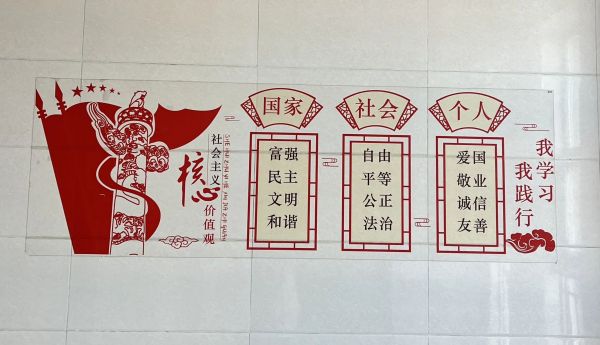 社会主义
核心
价值观
国家
富强
民主
文明
和谐
社会
自由
平等
公正
法治
个人
爱国
敬业
诚信
友善
我学习
我践行